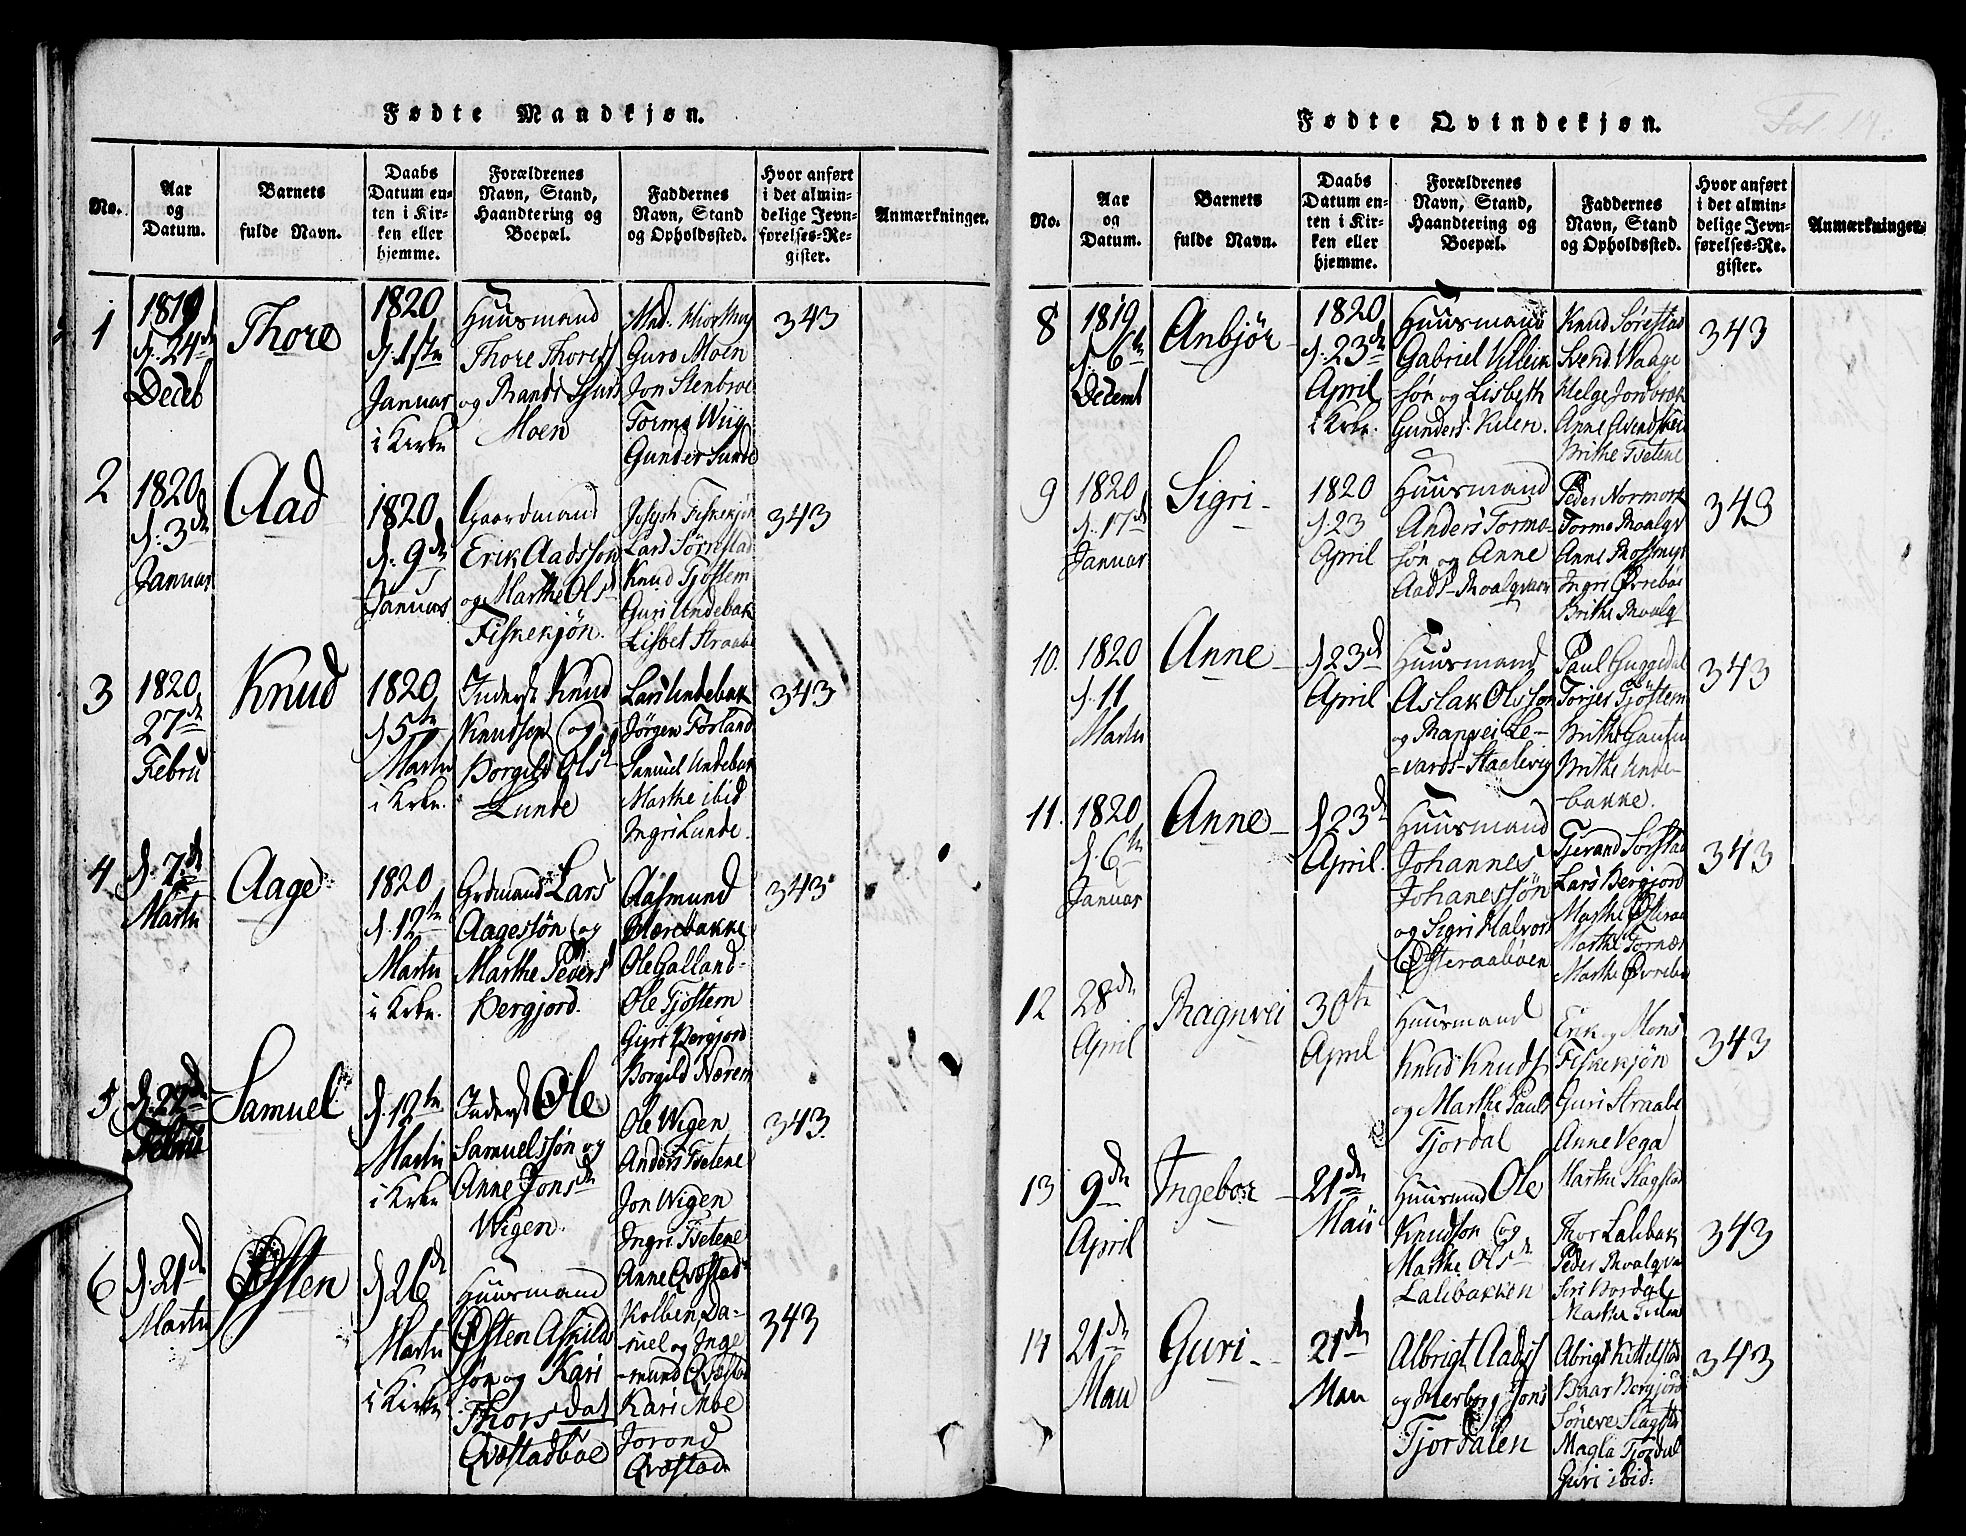 Fødte Mandkjøn.
No.
Aar
og
Datum.
Barnets
fulde Navn.
Daabs
Datum en-
ten i Kir-
ken eller
hjemme.
Forældrenes
Navn, Stand,
Haandtering og
Boepæl.
Faddernes
Navn, Stand
og Opholdssted.
Hvor anført
i det almin-
delige Jevn-
førelses-Re-
gister.
Anmærkninger.
1
1819
d. 24de
Deceb
Thore
1820
d. 1ste
Januar
i Kirke
Huusmand
Thore Thores
og
Moen
Guro Moen
Jon Stenbroe
Tormo Wiig
Gunder Sunde
343
2
1820
d. 3de
Januar
Aad
1820
d. 9de
Januar
Gaardmand
Erik Aadssøn
og Marthe Olsd
Fiskekjøn.
Joseph Fiskekjøn
Lars Sørrestad
Knud Tjøstem
Guri Undebak
Lisbet Straabe
343
3
1820
27de
Febru
Knud
1820
d 5te
Martii
i Krke.
Inderst Knud
Knudsen og
Borgild Olsd
Lunde
Lars Undebak
Jørgen Førland
Samuel Undebak
Marthe ibid
Ingri Lunde.
343
4
d. 7de
Martii
Aage
1820
d. 12te
Martii
i Krke.
Grdmand Lars
Aagessøn og
Marthe Peders
Bergjord.
Aasmund
Ole Galland
Ole Tjøstem
Guri Bergjord
Borgild Nærem
343
5
d. 22de
Febru
Samuel
d. 12te
Martii
i Krke
Inderst Ole
Samuelssøn og
Anne Jonsd
Wigen.
Ole Wigen
Anders Tvetene
Jon Wigen
Ingri Tvetene
Anne Qvæstad
343.
6
d. 21de
Martii
Østen
d 26de
Martii
i Kirke
Huusmand
Østen Askilds
søn og Kari
Thorsdat
Qvæstadbøe
Kolben Da-
niel og Inge
-mund Qvæstad
Kari Moe
Jorond
Qvæstad
343
Fødte Qvindekjøn.
Fol. 17.
No.
Aar
og
Datum.
Barnets
fulde Navn.
Daabs
Datum en-
ten i Kir-
ken eller
hjemme.
Forældrenes
Navn, Stand,
Haandtering og
Boepæl.
Faddernes
Navn, Stand
og Opholdssted.
Hvor anført
i det almin-
delige Jevn-
førelses-Re-
gister.
Anmærkninger.
8
1819
d. 6te
Decemb
Anbjør
1820
d. 23de
April
i Krke.
Huusmand
Gabriel Villein
søn og Lisbeth
Gunders Kilen.
Knud Sørestad
Svend Waage
Helge Jonbræk
Anne
Brithe Tvetene
343
9
1820
d. 17de
Januar
Sigri
1820
d. 23
April
Huusmand
Anders Tormo
søn og Anne
Aads Roalqvam
Peder Normork
Tormo Roalqv
Anne
Ingri Øvrebøe
Brithe Roalq
343
10.
1820
d. 11
Martii
Anne
d 23de
April
Huusmand
Aslak Olssøn
og Ranvei Le-
-vards Staalevig
Paul Guggedal
Torjes Tjøstem
Brithe
Brithe Unde-
bakke.
343
11.
1820
d. 6te
Januar
Anne
d 23de
April.
Huusmand
Johannes
Johanessøn
og Sigri Halvors
Østeraabøen
Tjerand Sørstad
Lars Bergjord
Marthe Østeraa
Marthe Tornæs
Marthe Øvrebø
343
12
28de
April
Ragnvei
30te
April
Huusmand
Knud Knuds
og Marthe Pauls
Tjordal
Erik og Mons
Fiskekjøn
Guri Straabe
Anne Vega
Marthe Slagstad
343
13
9de
April
Ingebor
21de
Maii
Huusmand Ole
Knudsøn og
Marthe Olsd
Lalibakken
Thor Lalibak
Peder Roalqva
Siri Bordal
343
14
21de
Maii
Guri
21de
Maii
Albrigt Aads
og
Tjordalen
Abrigt Kittelstad
Baar Bergjord
Søneve Slagsta
Magla Tjordal
Guri ibid:
343